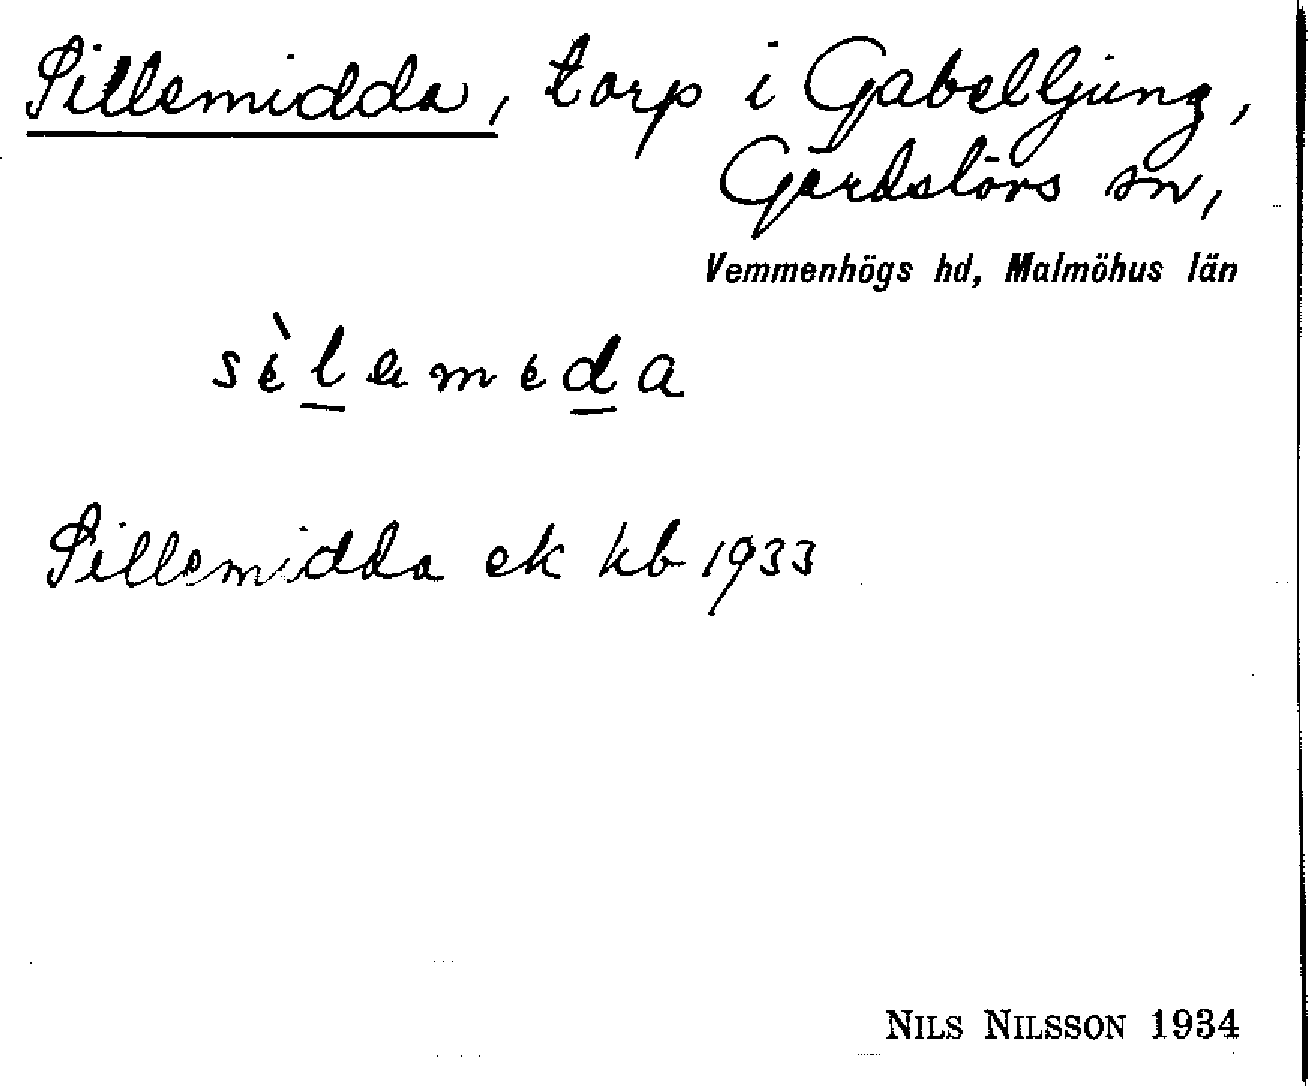 Sillemidda, torp i Gabelljung,
Gärdslövs sn,
Vemmenhögs hd, Malmöhus län
sèlameda
Sillemidda ek kb 1933
NILS NILSSON 1934